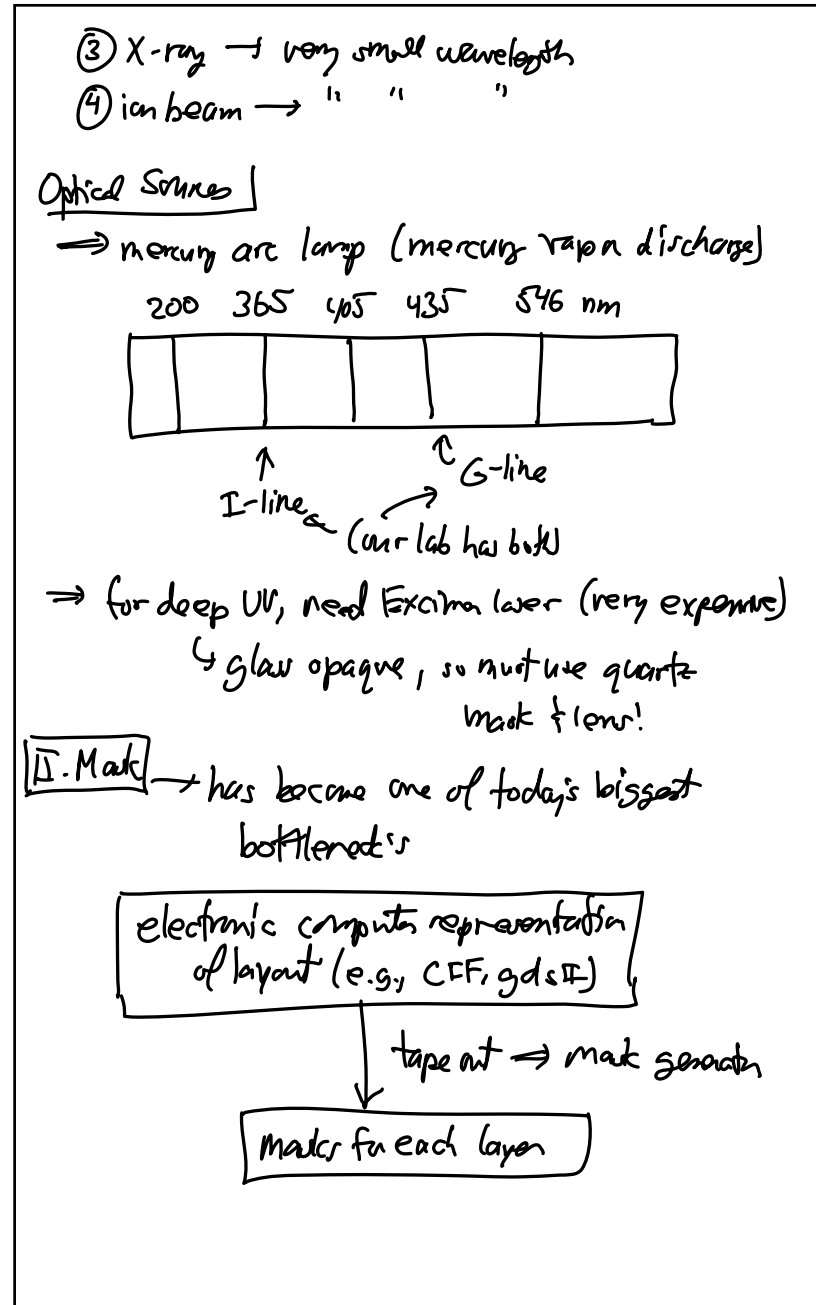 ③ X-ray → very small wavelength
④ ion beam → " " "
Optical Sources
⇒ mercury arc lamp (mercury vapor discharge)
200 365 405 435 546 nm
I-line G-line
(our lab has both)
⇒ for deep UV, need Excimer laser (very expensive)
↳ glass opaque, so must use quartz
mask & lens!
II. Mask → has become one of today's biggest
bottleneck's
electronic computer representation
of layout (e.g., CIF, gdsII)
tape out ⇒ mask generator
masks for each layer